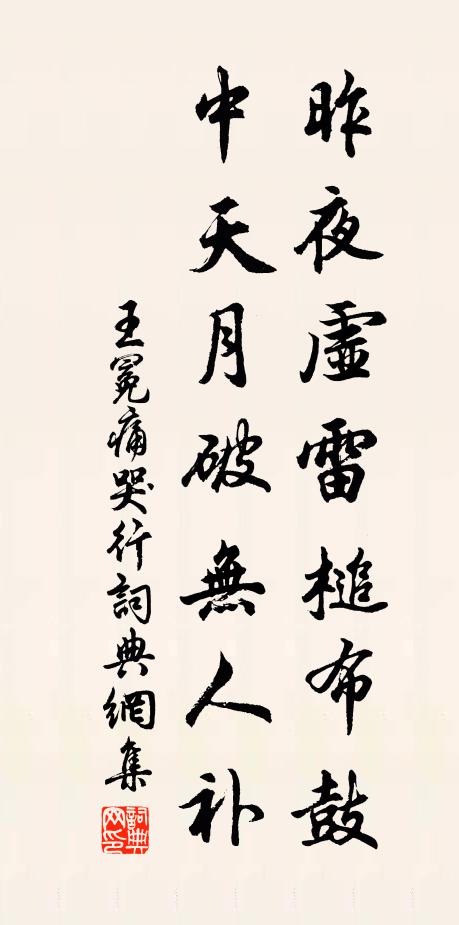 昨夜虛雷槌布鼓
中天月破無人补
王冕痛哭行詞典網集
詞典網印